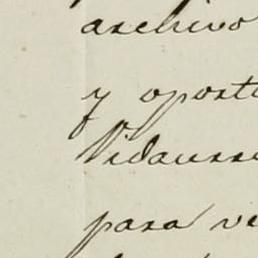 archivo
y oporti
Vidaurre
para ve